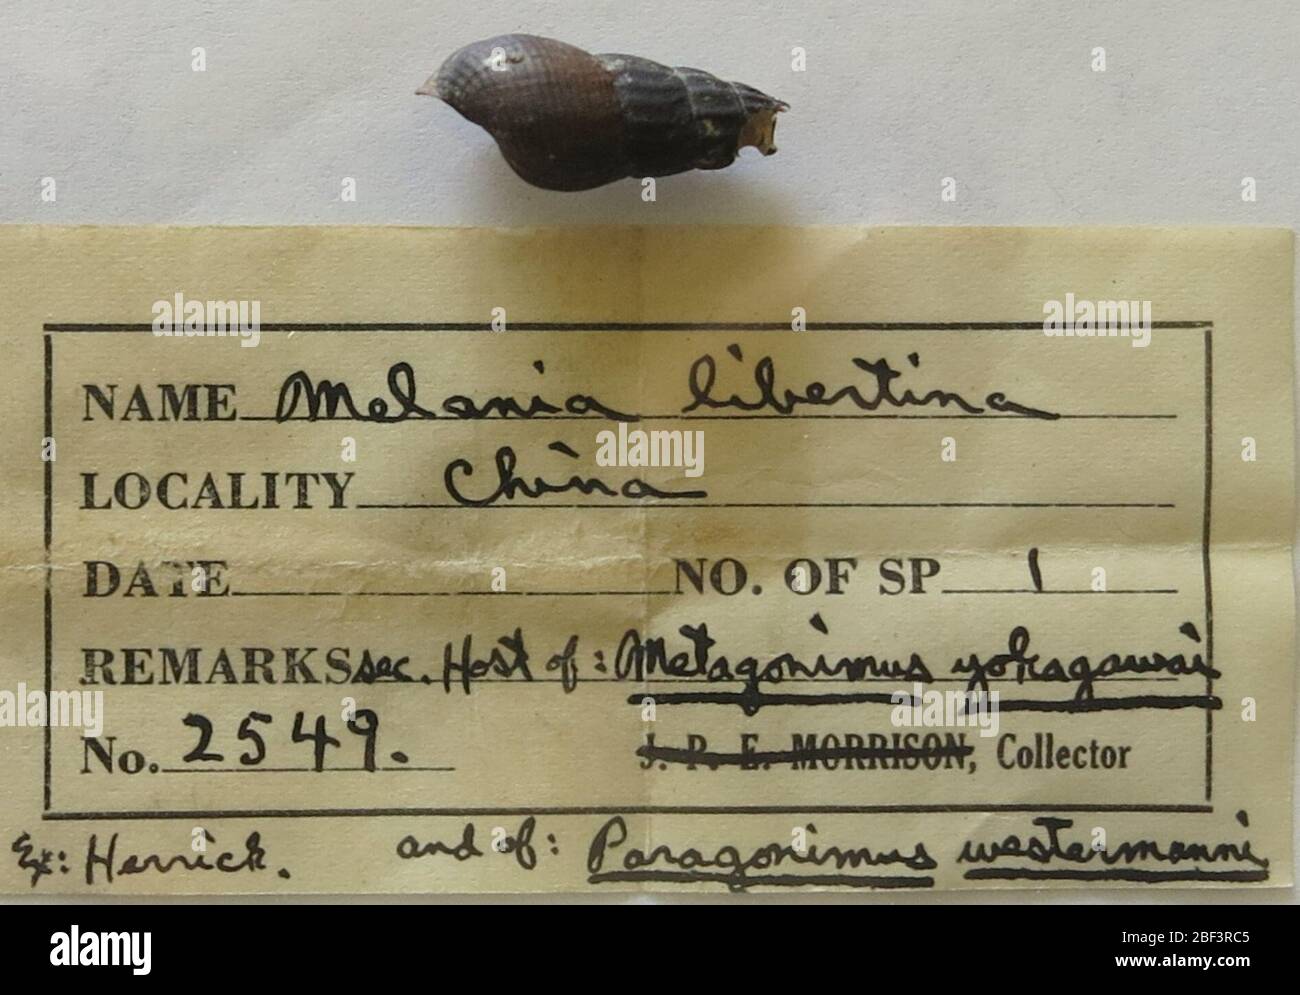 NAME Melania libertina
LOCALITY China
DATE NO. OF SP 1
REMARKS sec. Host of: Metagonimus yokagawai
No. 2549. J. P. E. MORRISON, Collector
Ex: Herrick. and of: Paragonimus westermanni
alamy
Image ID: 2BF3RC5
www.alamy.com